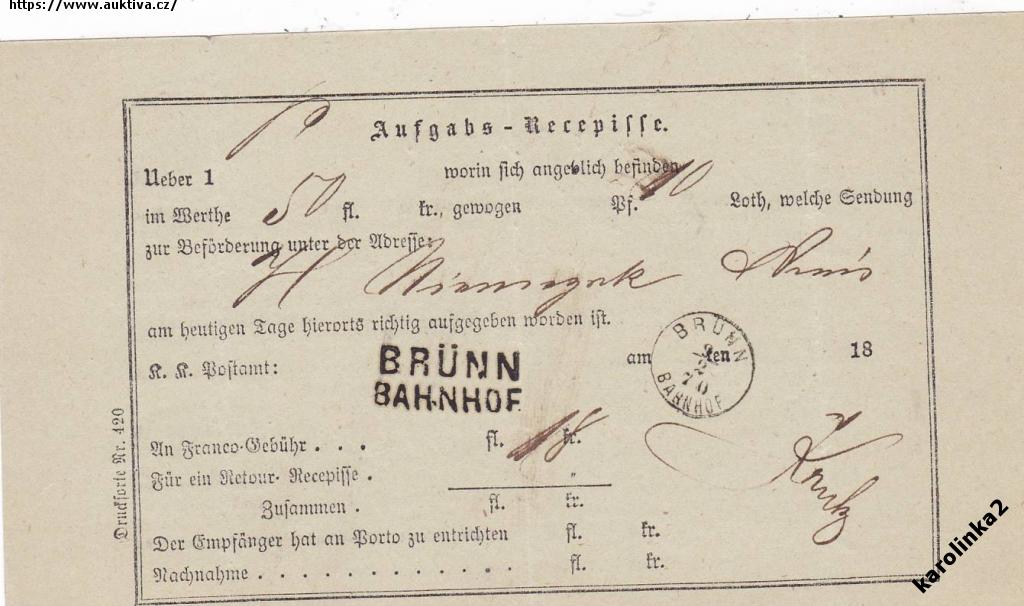 https://www.auktiva.cz/
Aufgabs-Recepisse.
Ueber 1 worin sich angeblich befinden
im Werthe 50 fl. kr., gewogen Pf. 10 Loth, welche Sendung
zur Beförderung unter der Adresse:
am heutigen Tage hierorts richtig aufgegeben worden ist.
K. K. Postamt: BRÜNN BAHNHOF am ten 18
BRÜNN
70
BAHNHOF
An Franco-Gebühr . . . fl. 18 kr.
Für ein Retour-Recepisse . "
Zusammen . fl. kr.
Der Empfänger hat an Porto zu entrichten fl. kr.
Nachnahme . . . . . . . . . . . . fl. kr.
Drucksorte Nr. 420
karolinka2